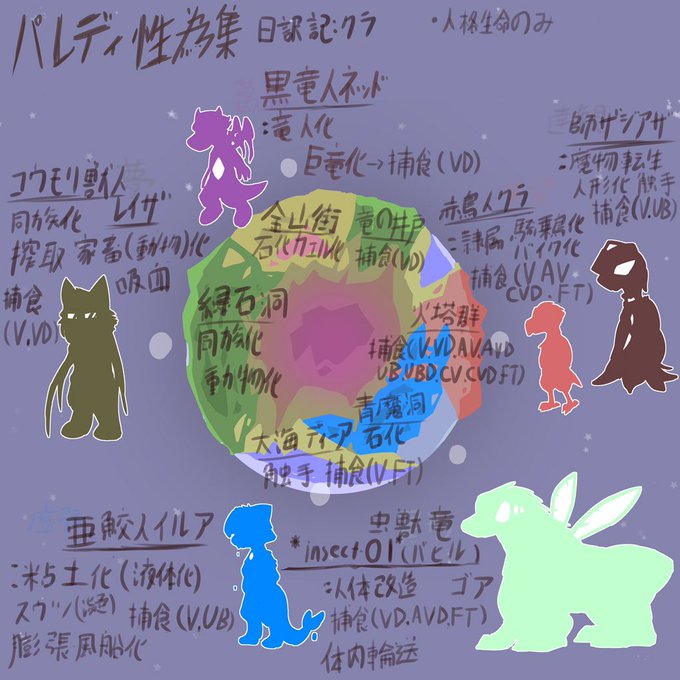 パレディ性為集 日訳記:クラ
・人格生命のみ
黒竜人ネッド
:竜人化
巨竜化→捕食(VD)
師ザジアザ
:魔物転生
人形化 触手
捕食(V.UB)
コウモリ獣人
レイザ
同族化
搾取 家畜(動物)化
吸血
捕食
(V.VD)
金山街
石化カエル化
竜の井戸
捕食(VD)
赤鳥人クラ
:隷属 騎乗化
バイク化
捕食(V.AV.
CVD.FT)
緑石洞
同族化
動力物化
火塔群
捕食(V.VD.AV.AVD
UB.UBD.CV.CVD.FT)
青魔洞
石化
大海ディーア
触手 捕食(V.FT)
亜鮫人イルア
:粘土化(液体化)
スウツ(憑色) 捕食(V.UB)
膨張風船化
虫獣竜
*insect-01*(バビル)
:人体改造 ゴア
捕食(VD.AVD.FT)
体内輸送